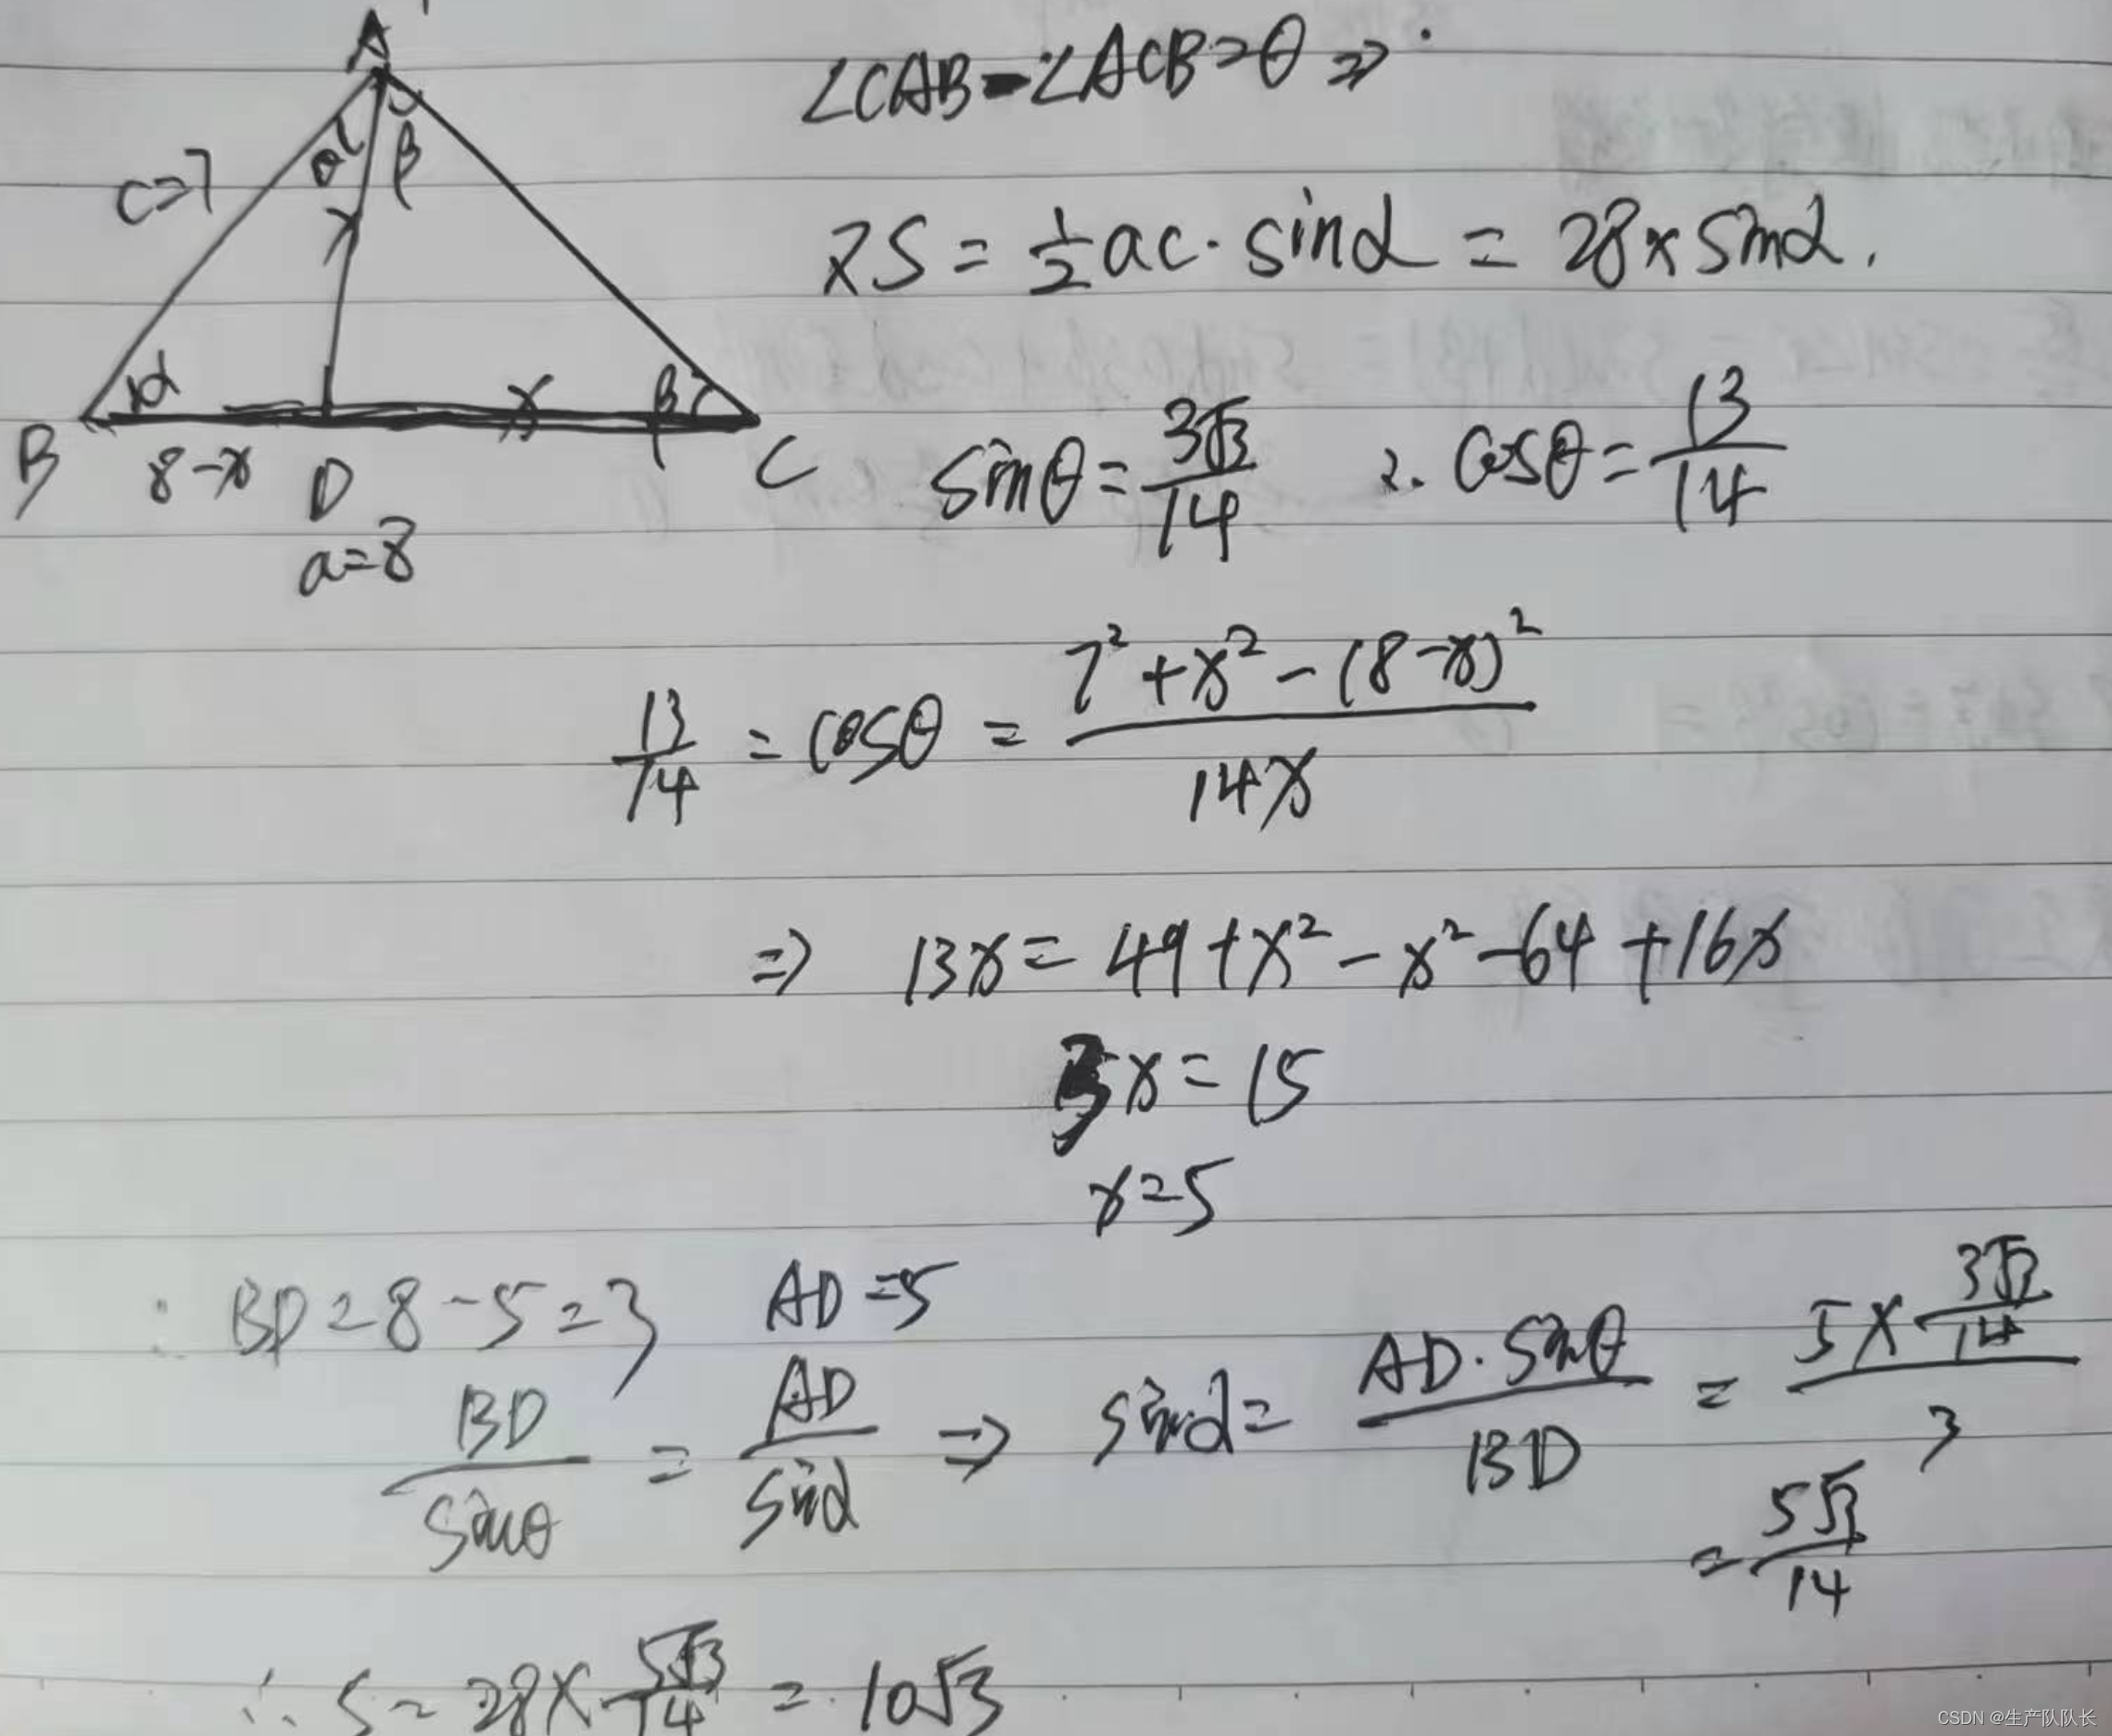 A
∠CAB-∠ACB=θ ⇒
c=7
θ
β
x
又S = 1/2 ac·sinα = 28×sinα.
α
x
β
B
8-x
D
C
a=8
sinθ = 3√3/14 ∴ cosθ = 13/14
13/14 = cosθ = (7²+x²-(8-x)²)/14x
⇒ 13x = 49+x²-x²-64+16x
3x = 15
x=5
∴ BD=8-5=3 AD=5
BD/sinθ = AD/sinα ⇒ sinα = AD·sinθ/BD = (5×3√3/14)/3
= 5√3/14
∴ S = 28×5√3/14 = 10√3
CSDN @生产队队长